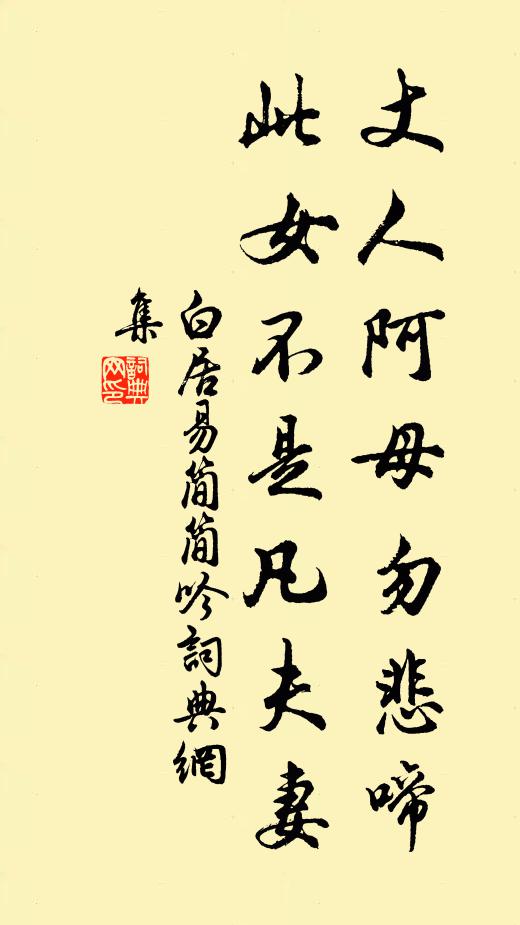 丈人阿母勿悲啼
此女不是凡夫妻
白居易简简吟詞典網
集
詞典
网印